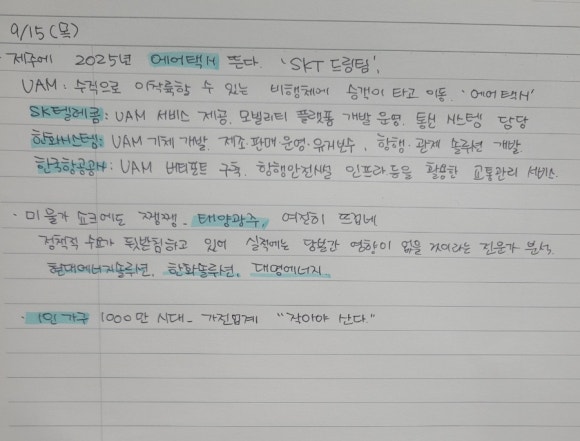 9/15 (목)
· 제주에 2025년 에어택시 뜬다. 'SKT 드림팀',
UAM : 수직으로 이착륙할 수 있는 비행체에 승객이 타고 이동. '에어택시'
SK텔레콤 : UAM 서비스 제공, 모빌리티 플랫폼 개발 운영, 통신 시스템 담당
한화시스템 : UAM 기체 개발, 제조·판매 운영·유지보수, 항행·관제 솔루션 개발
한국항공공사 : UAM 버티포트 구축, 항행안전시설 인프라 등을 활용한 교통관리 서비스.
· 미 물가 쇼크에도 쨍쨍_ 태양광주, 여전히 뜨겁네
정책적 수요가 뒷받침하고 있어 실적에는 당분간 영향이 없을 것이라는 전문가 분석.
현대에너지솔루션, 한화솔루션, 대명에너지
· 1인 가구 1000만 시대_ 가전업계 "작아야 산다."